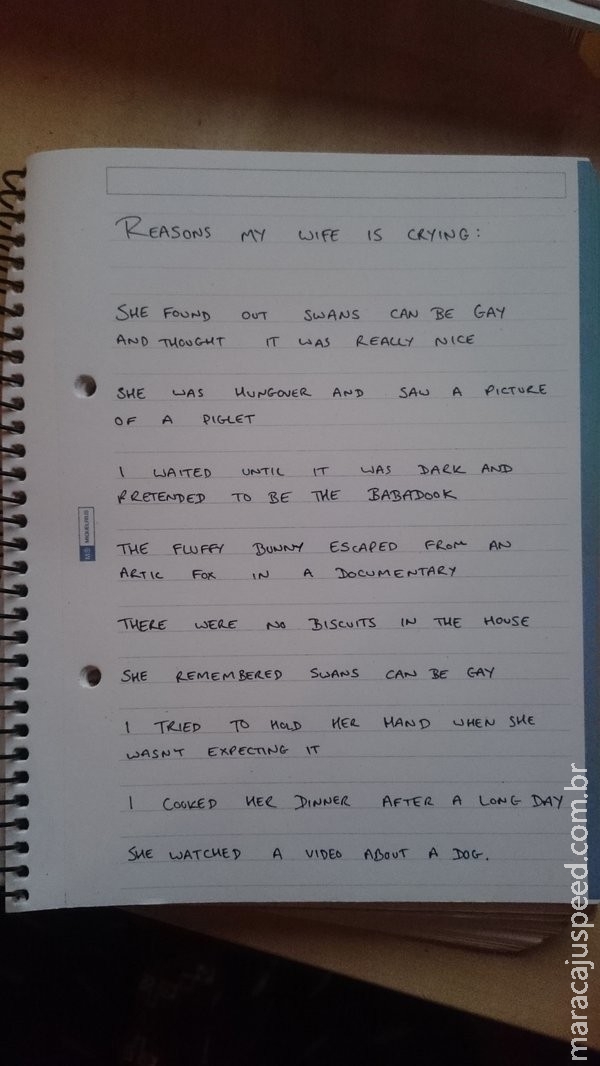 REASONS MY WIFE IS CRYING:
SHE FOUND OUT SWANS CAN BE GAY
AND THOUGHT IT WAS REALLY NICE
SHE WAS HUNGOVER AND SAW A PICTURE
OF A PIGLET
I WAITED UNTIL IT WAS DARK AND
PRETENDED TO BE THE BABADOOK
THE FLUFFY BUNNY ESCAPED FROM AN
ARTIC FOX IN A DOCUMENTARY
THERE WERE NO BISCUITS IN THE HOUSE
SHE REMEMBERED SWANS CAN BE GAY
I TRIED TO HOLD HER HAND WHEN SHE
WASNT EXPECTING IT
I COOKED HER DINNER AFTER A LONG DAY
SHE WATCHED A VIDEO ABOUT A DOG.
maracajuspeed.com.br